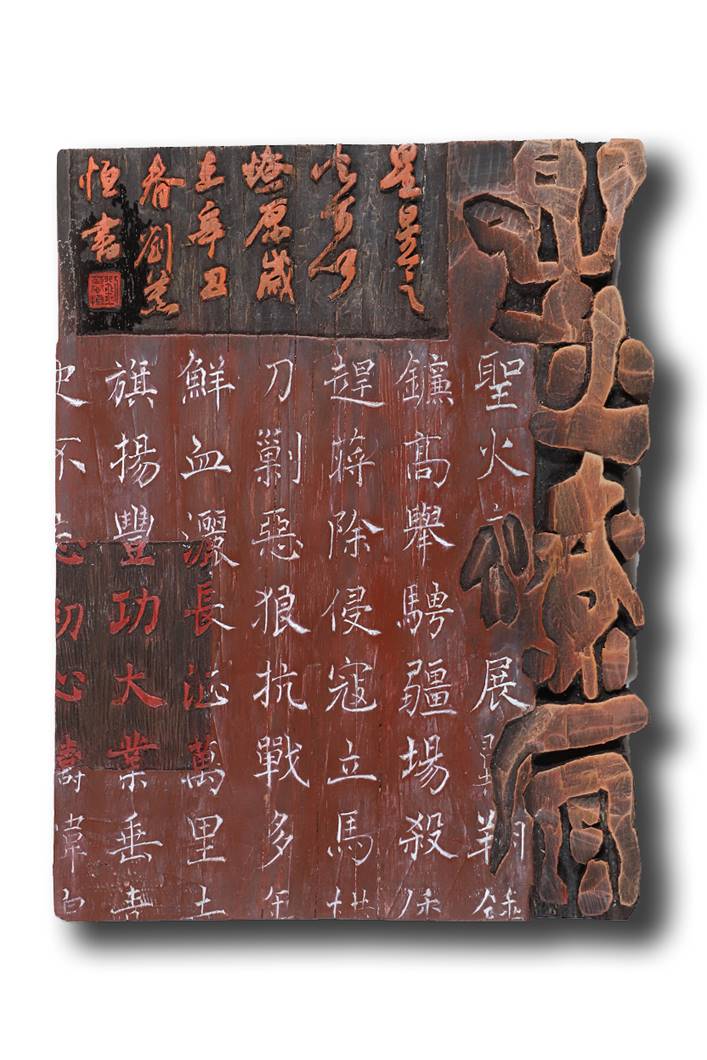 星火燎原
星星之
火可以
燎原歲
在辛丑
春劉
恒書
聖火展翼翔
鐮高舉騁疆場殺
趕蔣除侵寇立馬
刀剿惡狼抗戰多年
鮮血灑長萬里土
旗揚豐功大業垂青
史不忘初心